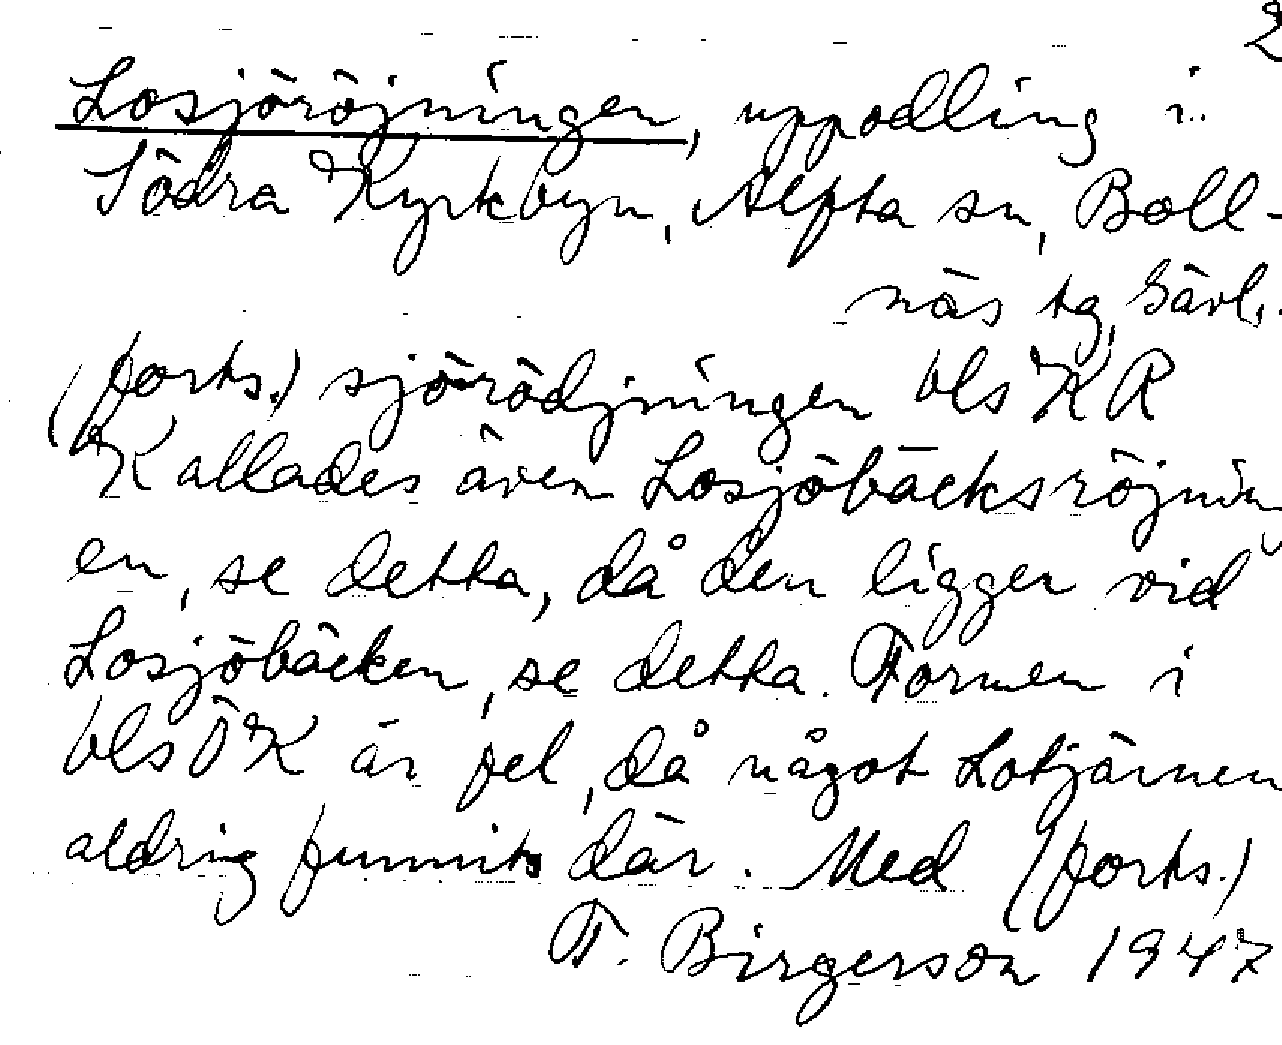 2
Losjöröjningen, uppodling i
Södra Kyrkbyn, Alfta sn, Boll-
näs tg, Gävl.
(forts.) sjörödjningen bls KR
Kallades även Losjöbäcksröjning
en, se detta, då den ligger vid
Losjöbäcken, se detta. Formen i
bls ÖK är fel, då något Lotjärnen
aldrig funnits där. Med (forts.)
F. Birgerson 1947